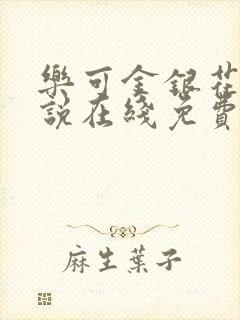 樂可金銀花
說在綫免費
麻生葉子